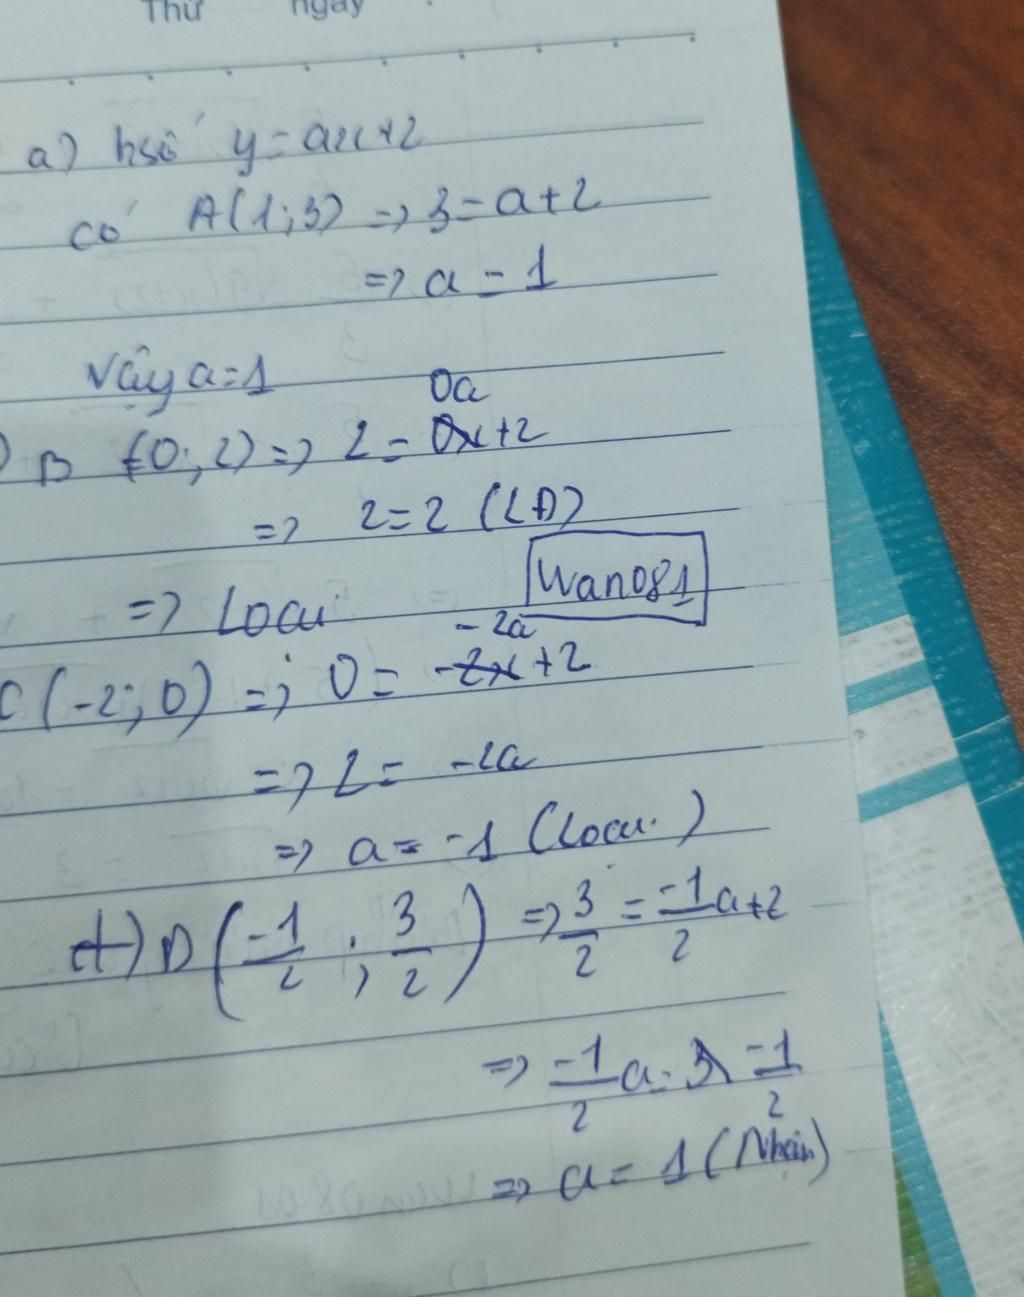 Thứ ngày
a) hsố y = ax+2
có A(1;3) => 3 = a+2
=> a = 1
Vậy a=1
0a
) B (0; 2) => 2 = 0x+2
=> 2=2 (LĐ)
=> Loại
Wan081
-2a
C (-2; 0) => 0 = -2x+2
=> 2 = -2a
=> a = -1 (Loại)
d) D (-1/2 ; 3/2) => 3/2 = -1/2 a+2
=> -1/2 a = -1/2
=> a = 1 (Nhận)